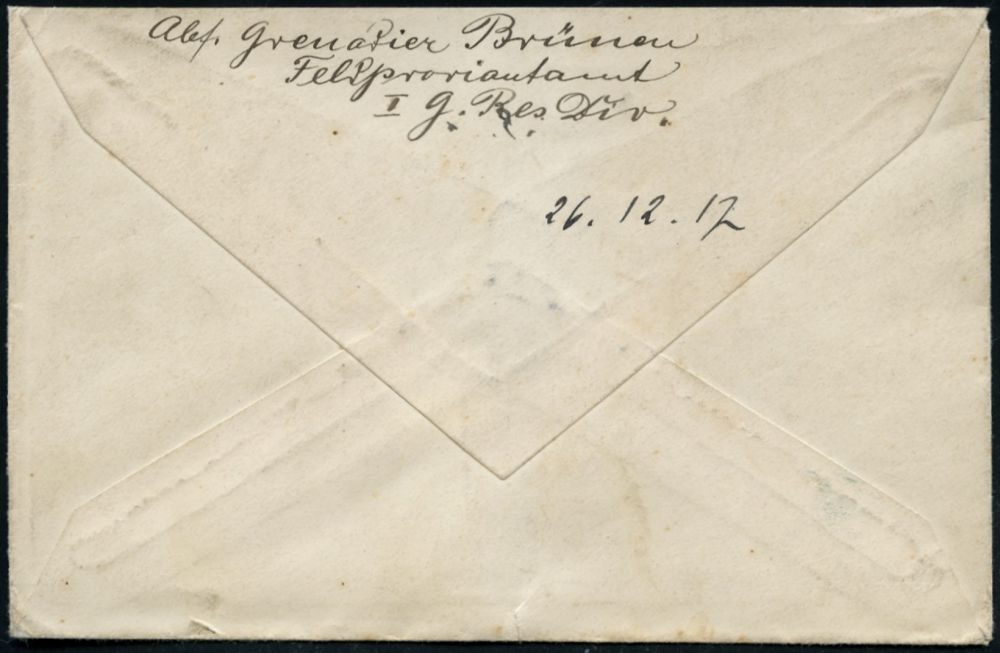 Abs. Grenadier Brünen
Feldproviantamt
I G. Res. Div.
26. 12. 17